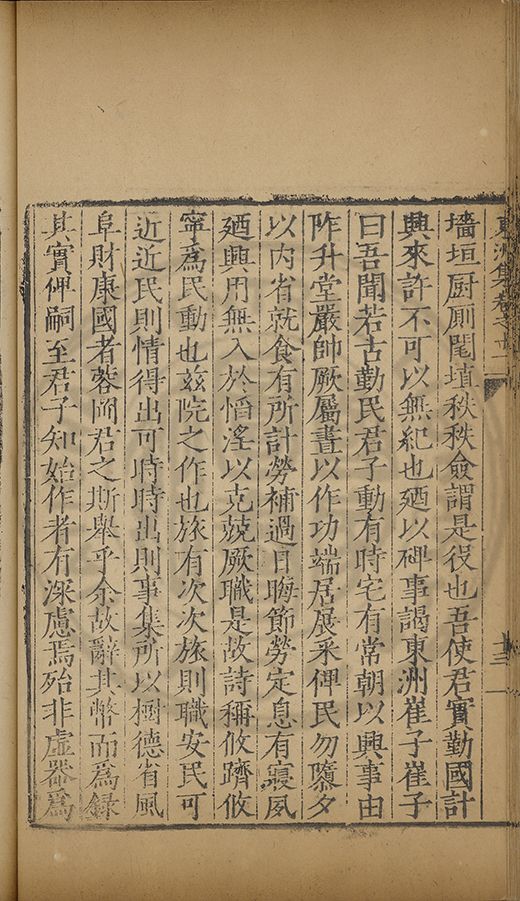 東洲集卷之十二
十三
墻垣厨厠闈埴秩秩僉謂是役也吾使君實勤國計
興來許不可以無紀也廼以碑事謁東洲崔子崔子
曰吾聞若古勤民君子動有時宅有常朝以興事由
阼升堂嚴帥厥屬晝以作功端居展采俾民勿隳夕
以内省就食有所計勞補過日晦節勞定息有寢夙
廼興用無入於慆淫以克兢厥職是故詩稱攸躋攸
寧爲民動也兹院之作也旅有次次旅則職安民可
近近民則情得出可時時出則事集所以樹德省風
阜財康國者蓉岡君之斯舉乎余故辭其幣而爲録
其實俾嗣至君子知始作者有深慮焉殆非虛器爲